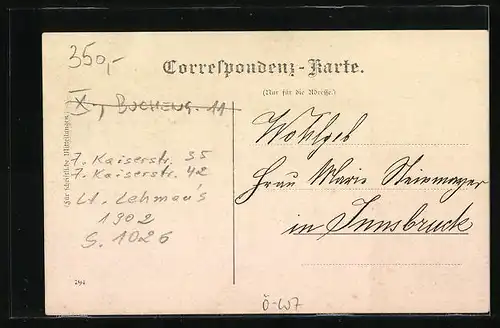 350,-
Correspondenz-Karte.
(Nur für die Adresse.)
X., BUCHENG. 11
(Für schriftliche Mittheilungen.)
7. Kaiserstr. 35
7. Kaiserstr. 42
Lt. Lehmann's
1902
S. 1026
Wohlgeb
Frau Marie Steinmayer
in Innsbruck
Ö-W7